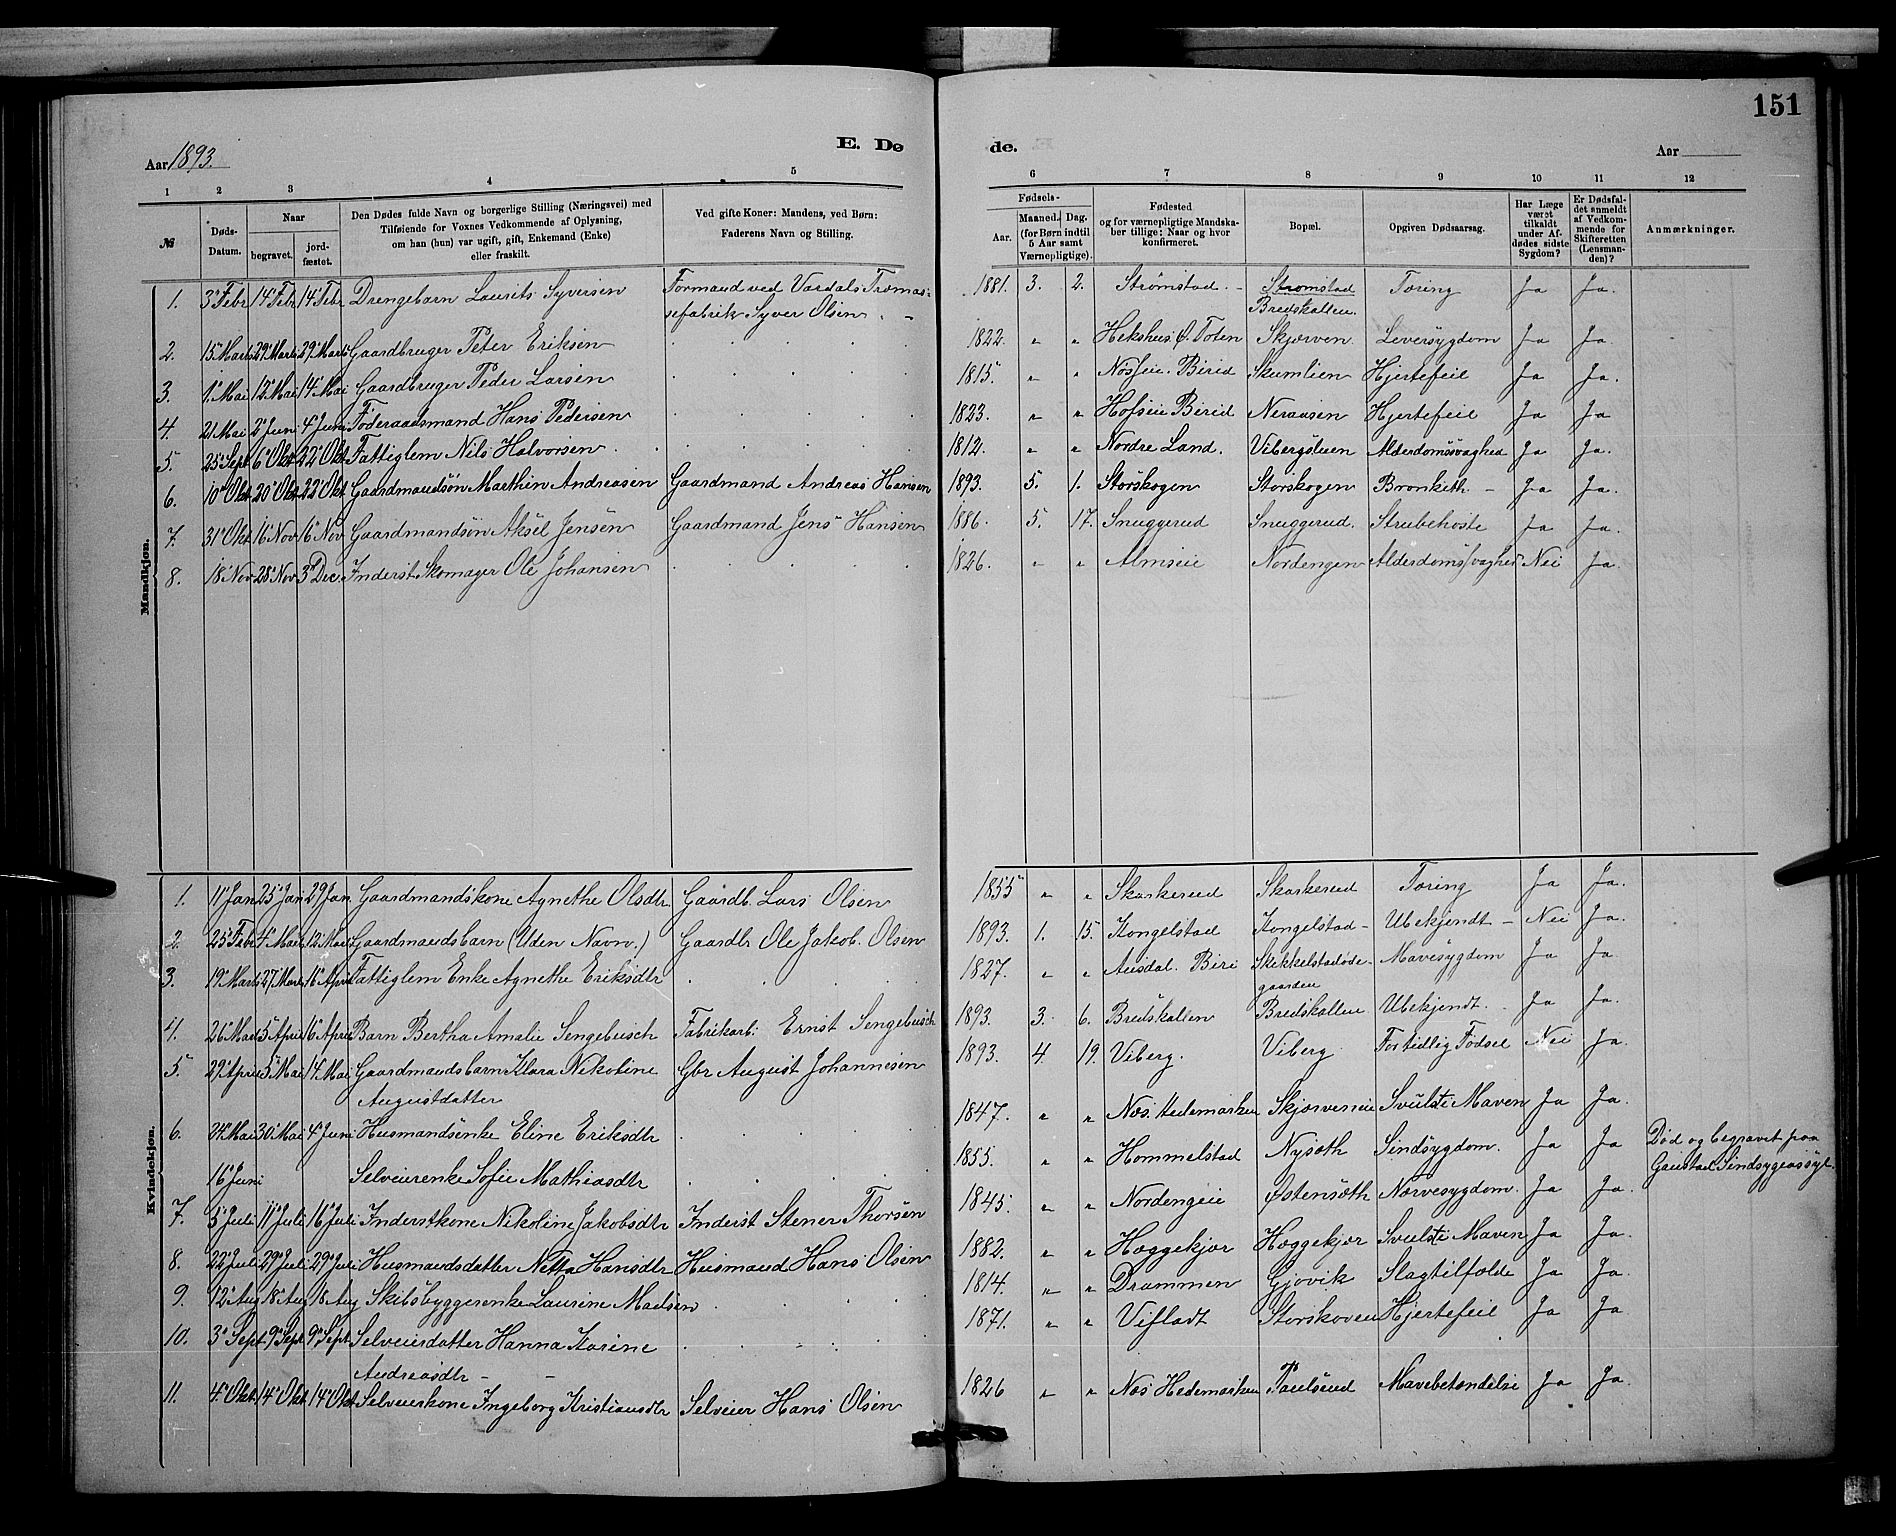 151
E. Dø
de.
Aar 1893.
Aar
1 2 3 4 5 6 7 8 9 10 11 12
№
Døds-
Datum.
Naar
begravet.
jord-
fæstet.
Den Dødes fulde Navn og borgerlige Stilling (Næringsvei) med
Tilføiende for Voxnes Vedkommende af Oplysning,
om han (hun) var ugift, gift, Enkemand (Enke)
eller fraskilt.
Ved gifte Koner: Mandens, ved Børn:
Faderens Navn og Stilling.
Fødsels-
Aar.
Maaned. Dag.
(for Børn indtil
5 Aar samt
Værnepligtige).
Fødested
og for værnepligtige Mandska-
ber tillige: Naar og hvor
konfirmeret.
Bopæl.
Opgiven Dødsaarsag.
Har Læge
været
tilkaldt
under Af-
dødes sidste
Sygdom?
Er Dødsfal-
det anmeldt
af Vedkom-
mende for
Skifteretten
(Lensman-
den)?
Anmærkninger.
Mandkjøn.
1. 3 Febr 14 Febr 14 Febr Drengebarn Laurits Syversen Formand ved Vardals Træmas- 1881. 3. 2. Strømstad. Strømstad Tæring Ja Ja.
sefabrik Syver Olsen Bredskallen.
2. 15 Marts 29 Marts 29 Marts Gaardbruger Peter Eriksen 1822. " " Hekshus, Ø. Toten Skjærven Leversygdom Ja Ja.
3. 1 Mai 12 Mai 14 Mai Gaardbruger Peder Larsen 1815. " " Birid Skumlien Hjertefeil Ja Ja.
4. 21 Mai 2 Juni 4 Juni Føderaadsmand Hans Pedersen 1823. " " Hofseie Birid Neraasen Hjertefeil Ja Ja
5. 25 Sept 6 Okt 22 Okt Fattiglem Nils Halvorsen 1812. " " Nordre Land. Vibergsluen Alderdomssvaghed Ja Ja
6. 10 Okt 20 Okt 22 Okt Gaardmandsøn Marthin Andreasen Gaardmand Andreas Hansen 1893. 5. 1. Storskogen Storskogen Bronkith. Ja Ja.
7. 31 Okt 16 Nov 16 Nov Gaardmandsøn Aksel Jensen Gaardmand Jens Hansen 1886. 5. 17. Snuggerud Snuggerud. Strubehoste Ja Ja
8. 18 Nov 28 Nov 3 Dec Inderst Skomager Ole Johansen 1826. " " Almseie Nordengen Alderdomssvaghed Nei Ja.
Kvindekjøn.
1. 11 Jan 25 Jan 29 Jan Gaardmandskone Agnethe Olsdtr Gaardb. Lars Olsen 1855 " " Skarkerud Skarkerud Tæring Ja Ja.
2. 25 Febr Gaardmandsbarn (Uden Navn.) Gaardbr Ole Jakob Olsen 1893. 1. 15. Kongelstad Kongelstad Ubekjendt Nei Ja.
3. 19 Marts 27 Marts 16 April Fattiglem Enke Agnethe Eriksdtr 1827. " " Biri Skikkelstadøde- Mavesygdom Ja Ja.
gaarden
4. 26 Marts 5 April 16 April Barn Bertha Amalie Sengebusch Fabrikarb. Ernst Sengebusch 1893. 3. 6. Bredskallen Bredskallen Ubekjendt Ja Ja.
5. 29 April 5 Mai 14 Mai Gaardmandsbarn Klara Nikoline Gbr August Johannesen 1893 4. 19. Viberg. Viberg Fortidlig Fødsel Nei Ja.
Augustdatter
6. 21 Mai 30 Mai 4 Juni Husmandsenke Eline Eriksdtr 1847. " " Næs Hedemarken Skjærvenseie Svulst i Maven Ja Ja.
16 Juni Selveierenke Sofie Mathiasdtr 1855. " " Hommelstad Nysæth Sindsygdom. Ja Ja Død og begravet paa
Gaustad Sindsygeasyl.
7. 5 Juli 11 Juli 16 Juli Inderstkone Nikoline Jakobsdtr Inderst Stener Thorsen 1845 " " Nordengeie Østensæth Nervesygdom. Ja Ja.
8. 22 Juli 29 Juli 29 Juli Husmandsdatter Netta Hansdtr Husmand Hans Olsen 1882. " " Hæggekjær Hæggekjær Svulst i Maven Ja Ja.
9. 12 Aug 18 Aug 18 Aug Skibsbyggerenke Laurine Madsen 1814. " " Drammen Gjøvik Slagtilfælde Ja Ja.
10. 3 Sept 9 Sept 9 Sept Selveierdatter Hanna Karine 1871. " " Vifladt Storskoven Hjertefeil Ja Ja.
Andreasdtr
11. 4 Okt 14 Okt 14 Okt Selveierkone Ingeborg Kristiansdtr Selveier Hans Olsen 1826 " " Næs Hedemarken Paulsrud Mavebetændelse Ja Ja.